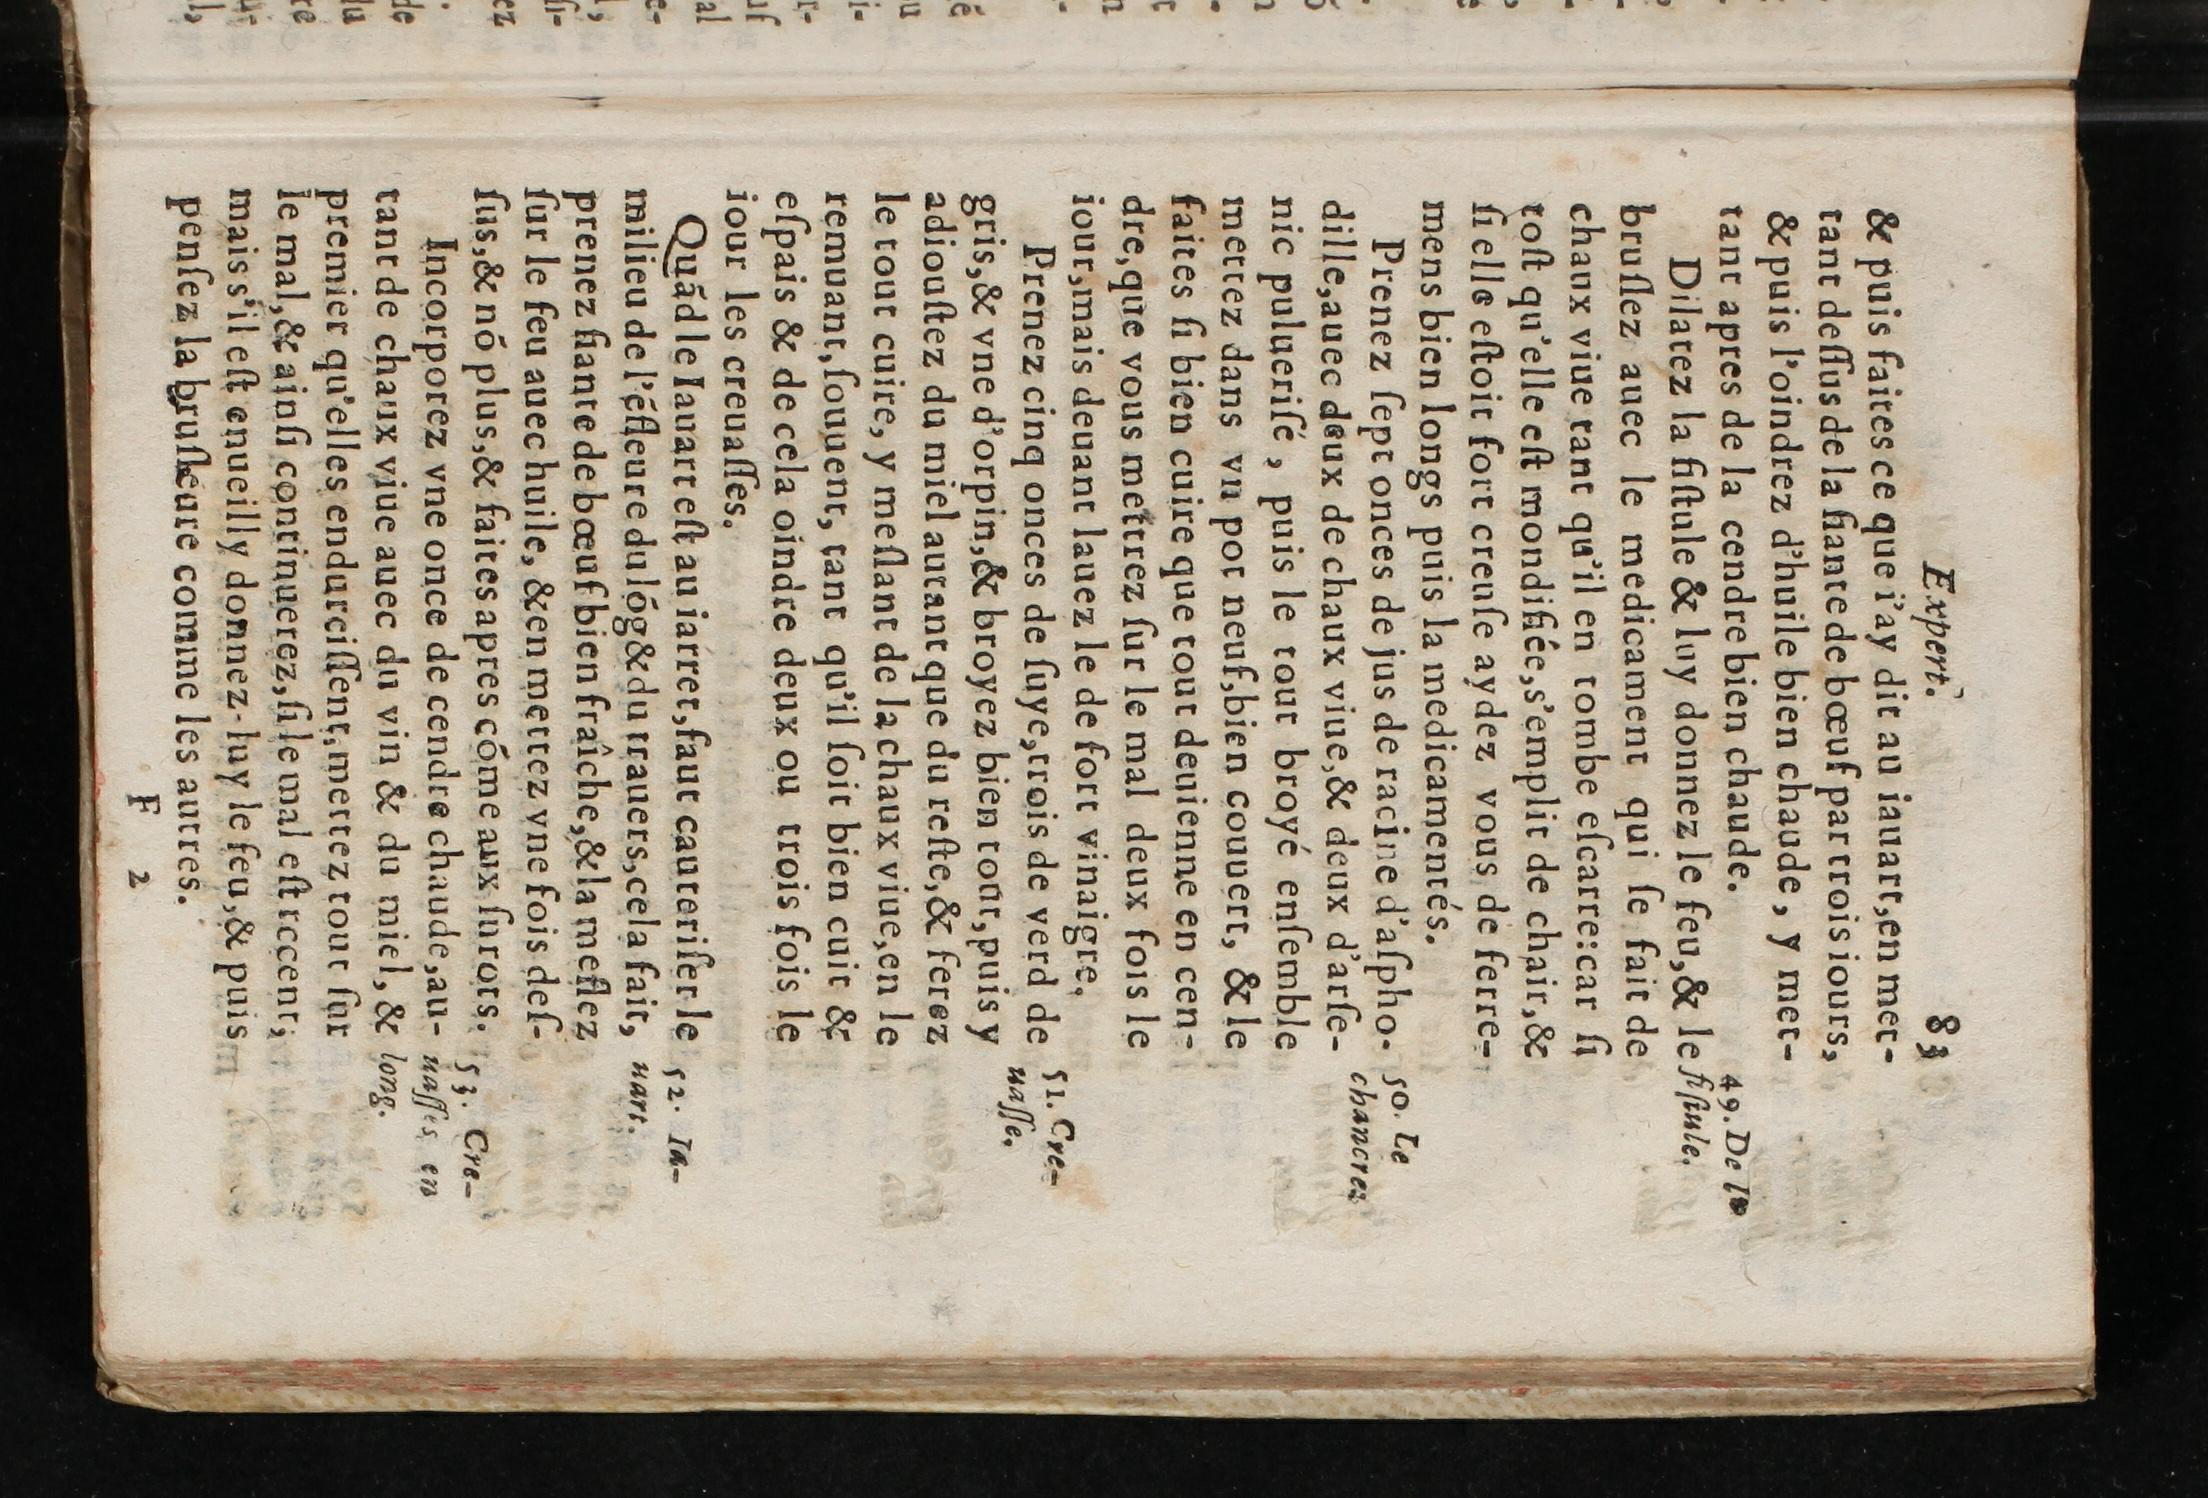 Expert. 83
& puis faites ce que i'ay dit au iauart, en met-
tant deſſus de la fiante de bœuf par trois iours,
& puis l'oindrez d'huile bien chaude, y met-
tant apres de la cendre bien chaude.
Dilatez la fiſtule & luy donnez le feu, & le
bruſlez auec le medicament qui ſe fait de
chaux viue tant qu'il en tombe eſcarre: car ſi
toſt qu'elle eſt mondifiée, s'emplit de chair, &
ſi elle eſtoit fort creuſe aydez vous de ferre-
mens bien longs puis la medicamentés.
Prenez ſept onces de jus de racine d'aſpho-
dille, auec deux de chaux viue, & deux d'arſe-
nic pulueriſé, puis le tout broyé enſemble
mettez dans vn pot neuf, bien couuert, & le
faites ſi bien cuire que tout deuienne en cen-
dre, que vous mettrez ſur le mal deux fois le
iour, mais deuant lauez le de fort vinaigre.
Prenez cinq onces de ſuye, trois de verd de
gris, & vne d'orpin, & broyez bien tout, puis y
adiouſtez du miel autant que du reſte, & ferez
le tout cuire, y meſlant de la chaux viue, en le
remuant, ſouuent, tant qu'il ſoit bien cuit &
eſpais & de cela oindre deux ou trois fois le
iour les creuaſſes.
Quãd le Iauart eſt au iarret, faut cauteriſer le
milieu de l'ẽfleure du lõg & du trauers, cela fait,
prenez fiante de bœuf bien fraîche, & la meſlez
ſur le feu auec huile, & en mettez vne fois deſ-
ſus, & nõ plus, & faites apres cõme aux ſurots.
Incorporez vne once de cendre chaude, au-
tant de chaux viue auec du vin & du miel, &
premier qu'elles endurciſſent, mettez tout ſur
le mal, & ainſi continuerez, ſi le mal eſt recent;
mais s'il eſt enueilly donnez-luy le feu, & puis
penſez la bruſleure comme les autres.
F 2
49. De la
fiſtule.
50. Le
chancre.
51. Cre-
uaſſe.
52. Ia-
uart.
53. Cre-
uaſſes en
long.